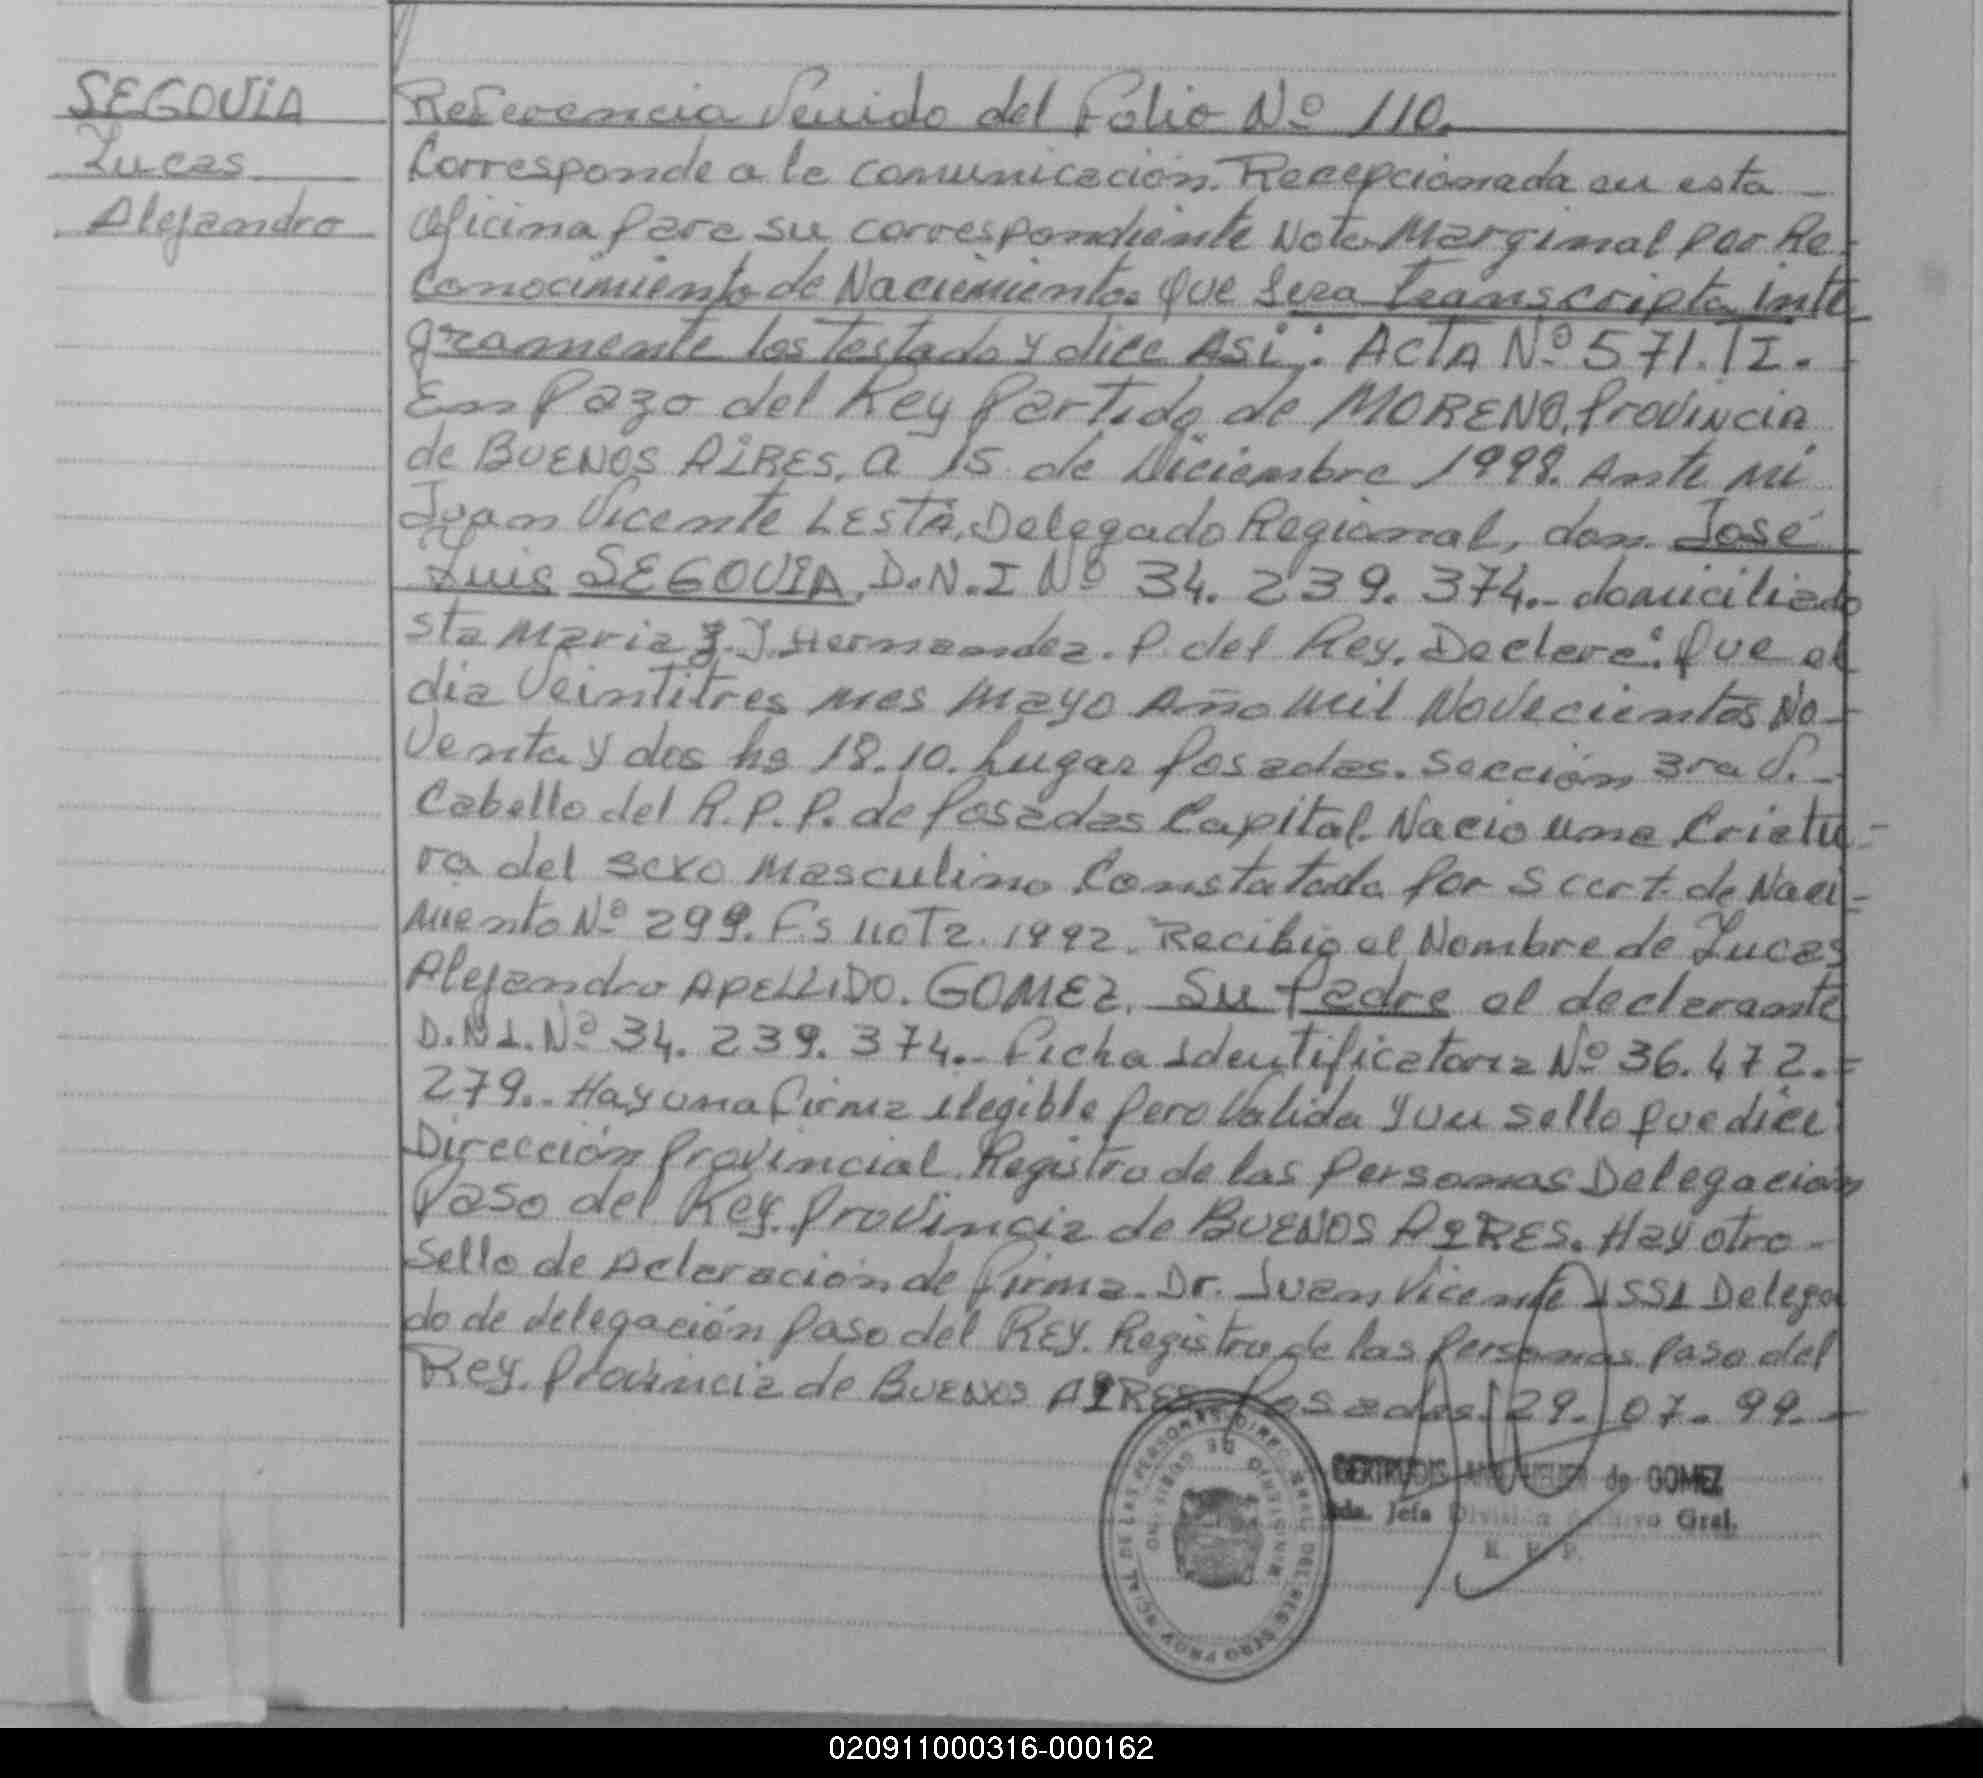 SEGOVIA
Lucas
Alejandro
Referencia Venido del Folio Nº 110.
Corresponde a la comunicación. Recepcionada en esta
oficina para su correspondiente Nota Marginal por Re-
conocimiento de Nacimiento. Que sera transcripta inte
gramente los testado y dice Asi: ACTA Nº 571. TI.
En Pazo del Rey Partido de MORENO, Provincia
de BUENOS AIRES, a 15 de Diciembre 1998. Ante mi
Juan Vicente LESTA, Delegado Regional, don. José
Luis SEGOVIA, D.N.I Nº 34.239.374.- domiciliado
sta Maria J. Hernandez. P. del Rey. Declara: Que el
dia Veintitres mes Mayo Año Mil Novecientos No-
venta y dos hs 18.10. Lugar Posadas. Sección 3ra P.-
Cabello del R.P.P. de Posadas Capital. Nacio una Criatu-
ra del sexo Masculino Constatada por s cert. de Naci-
miento Nº 299. 1992. Recibio el Nombre de Lucas
Alejandro APELLIDO. GOMEZ. Su Padre el declarante
D.N.I. Nº 34.239.374.- Ficha Identificatoria Nº 36.472.=
279.- Hay una firma ilegible pero Valida y un sello que dice:
Dirección Provincial Registro de las Personas Delegación
Paso del Rey. Provincia de BUENOS AIRES. Hay otro-
Sello de Aclaración de firma. Dr. Juan Vicente ISSI Delega
do de delegación Paso del REY. Registro de las Personas Paso del
Rey. Provincia de BUENOS AIRES. Posadas. 29.07.99.-
GERTRUDIS de GOMEZ
Jefa División Archivo Gral.
R. P. P.
DIREC. GRAL. DEL REGISTRO PROVINCIAL DE LAS PERSONAS
020911000316-000162